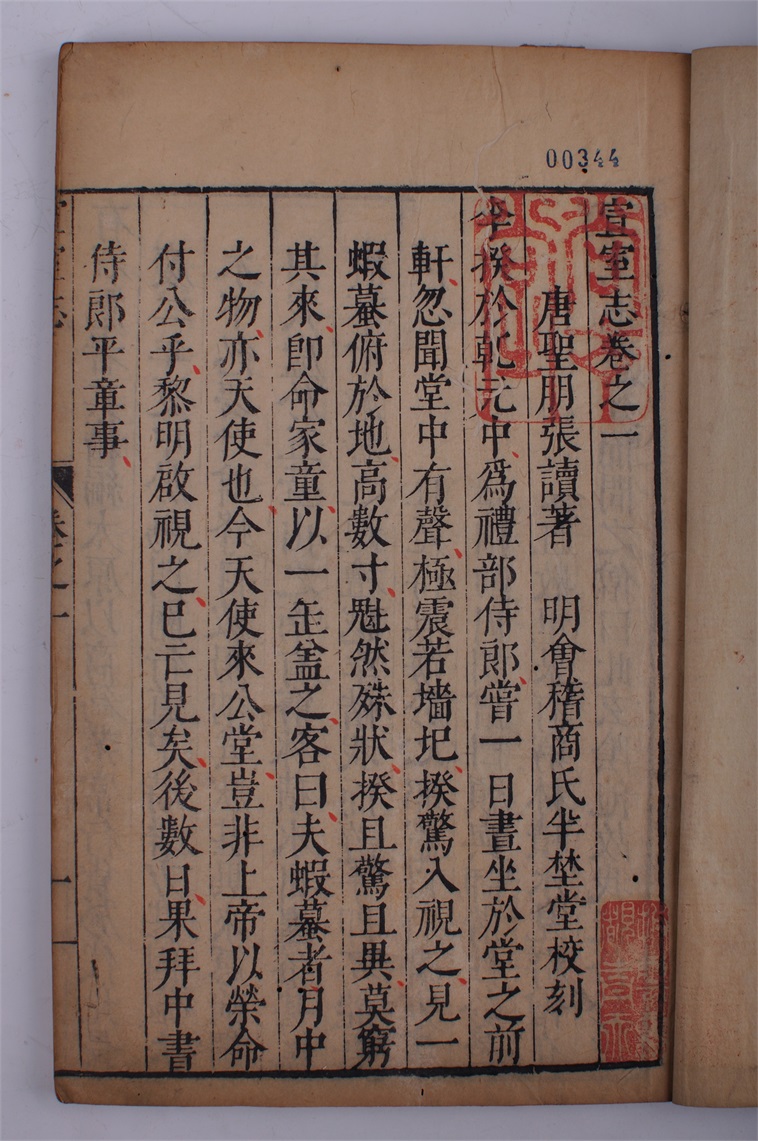 00344
宣室志卷之一
唐聖朋張讀著 明會稽商氏半埜堂校刻
李揆於乾元中爲禮部侍郎嘗一日晝坐於堂之前
軒忽聞堂中有聲極震若墻圯揆驚入視之見一
蝦蟇俯於地高數寸魋然殊狀揆且驚且異莫窮
其來卽命家童以一缶盖之客曰夫蝦蟇者月中
之物亦天使也今天使來公堂豈非上帝以榮命
付公乎黎明啟視之已亡見矣後數日果拜中書
侍郎平章事
宣室志
卷之一
一